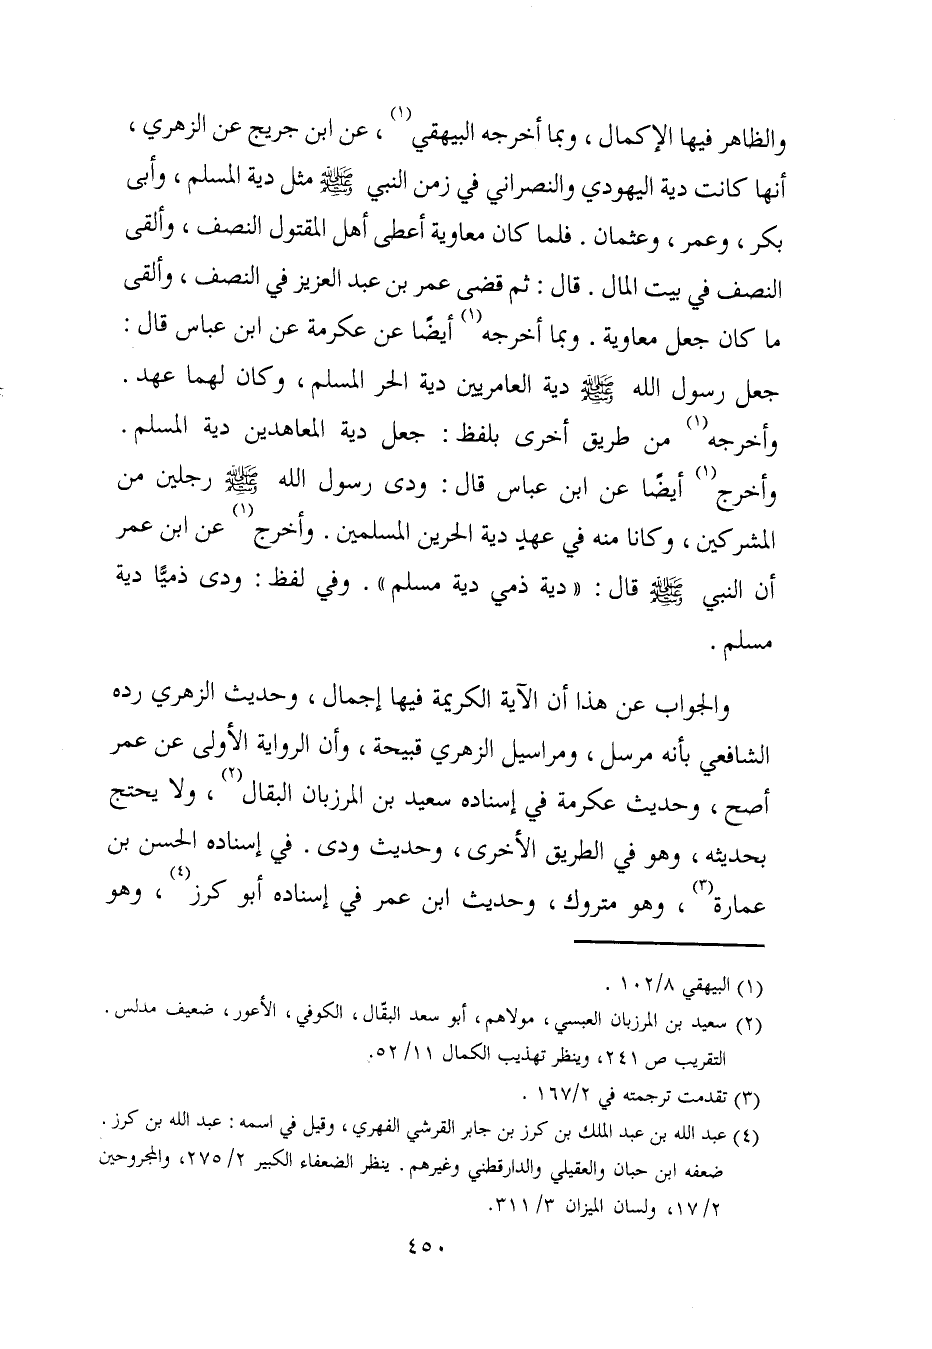 والظاهر فيها الإكمال ، وبما أخرجه البيهقي(١) ، عن ابن جريج عن الزهري ،
أنها كانت دية اليهودي والنصراني في زمن النبي ﷺ مثل دية المسلم ، وأبى
بكر ، وعمر ، وعثمان . فلما كان معاوية أعطى أهل المقتول النصف ، وألقى
النصف في بيت المال . قال : ثم قضى عمر بن عبد العزيز في النصف ، وألقى
ما كان جعل معاوية . وبما أخرجه(١) أيضًا عن عكرمة عن ابن عباس قال :
جعل رسول الله ﷺ دية العامريين دية الحر المسلم ، وكان لهما عهد .
وأخرجه(١) من طريق أخرى بلفظ : جعل دية المعاهدين دية المسلم .
وأخرج(١) أيضًا عن ابن عباس قال : ودى رسول الله ﷺ رجلين من
المشركين ، وكانا منه في عهدٍ دية الحرين المسلمين . وأخرج(١) عن ابن عمر
أن النبي ﷺ قال : « دية ذمي دية مسلم » . وفي لفظ : ودى ذميًّا دية
مسلم .
والجواب عن هذا أن الآية الكريمة فيها إجمال ، وحديث الزهري رده
الشافعي بأنه مرسل ، ومراسيل الزهري قبيحة ، وأن الرواية الأولى عن عمر
أصح ، وحديث عكرمة في إسناده سعيد بن المرزبان البقال(٢) ، ولا يحتج
بحديثه ، وهو في الطريق الأخرى ، وحديث ودى . في إسناده الحسن بن
عمارة(٣) ، وهو متروك ، وحديث ابن عمر في إسناده أبو كرز(٤) ، وهو
(١) البيهقي ١٠٢/٨ .
(٢) سعيد بن المرزبان العبسي ، مولاهم ، أبو سعد البقّال ، الكوفي ، الأعور ، ضعيف مدلس .
التقريب ص ٢٤١ ، وينظر تهذيب الكمال ١١/ ٥٢.
(٣) تقدمت ترجمته في ١٦٧/٢ .
(٤) عبد الله بن عبد الملك بن كرز بن جابر القرشي الفهري ، وقيل في اسمه : عبد الله بن كرز .
ضعفه ابن حبان والعقيلي والدارقطني وغيرهم . ينظر الضعفاء الكبير ٢/ ٢٧٥ ، والمجروحين
١٧/٢ ، ولسان الميزان ٣/ ٣١١.
٤٥٠